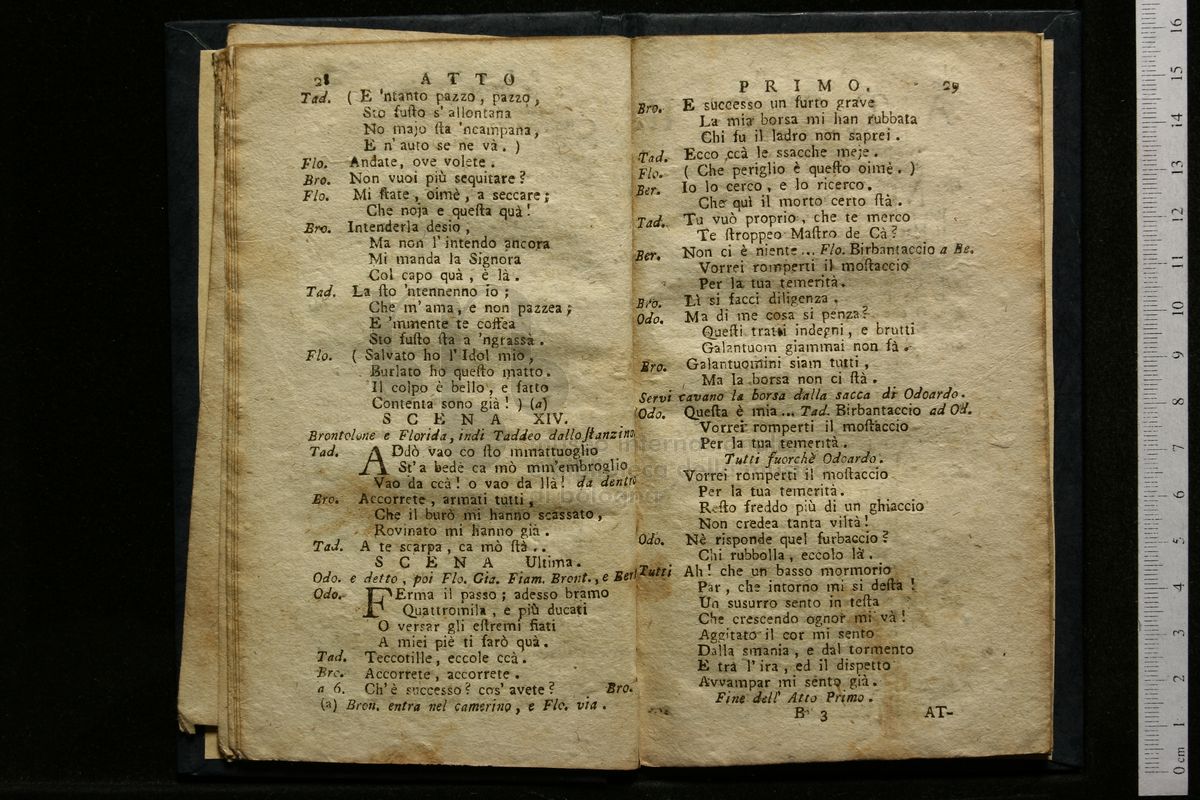 28 ATTO
Tad. ( E 'ntanto pazzo, pazzo,
Sto fuſto s' allontana
No majo ſta 'ncampana,
E n' auto se ne và. )
Flo. Andate, ove volete.
Bro. Non vuoi più sequitare?
Flo. Mi ſtate, oimè, a seccare;
Che noja e queſta quà!
Bro. Intenderla desio,
Ma non l' intendo ancora
Mi manda la Signora
Col capo quà, è là.
Tad. La ſto 'ntennenno io;
Che m' ama, e non pazzea;
E 'mmente te coffea
Sto fuſto ſta a 'ngrassà.
Flo. ( Salvato ho l' Idol mio,
Burlato ho queſto matto.
Il colpo è bello, e fatto
Contenta sono già! ) (a)
SCENA XIV.
Brontolone e Florida, indi Taddeo dallo ſtanzino
Tad. ADdò vao co ſto mmattuoglio
St' a bedè ca mò mm'embroglio
Vao da ccà! o vao da llà! da dentro
Bro. Accorrete, armati tutti,
Che il burò mi hanno scassato,
Rovinato mi hanno già.
Tad. A te scarpa, ca mò ſtà..
SCENA Ultima.
Odo. e detto, poi Flo. Gia. Fiam. Bront., e Ber.
Odo. FErma il passo; adesso bramo
Quattromila, e più ducati
O versar gli eſtremi fiati
A miei piè ti farò quà.
Tad. Teccotille, eccole ccà.
Bro. Accorrete, accorrete.
a 6. Ch' è successo? cos' avete? Bro.
(a) Bron. entra nel camerino, e Flo. via.
PRIMO. 29
Bro. E successo un furto grave
La mia borsa mi han rubbata
Chi fu il ladro non saprei.
Tad. Ecco ccà le ssacche meje.
Flo. ( Che periglio è queſto oimè. )
Ber. Io lo cerco, e lo ricerco.
Che quì il morto certo ſtà.
Tad. Tu vuò proprio, che te merco
Te ſtroppeo Maſtro de Cà?
Ber. Non ci è niente... Flo. Birbantaccio a Be.
Vorrei romperti il moſtaccio
Per la tua temerità.
Bro. Lì si facci diligenza.
Odo. Ma di me cosa si penza?
Queſti tratti indegni, e brutti
Galantuom giammai non fà.
Bro. Galantuomini siam tutti,
Ma la borsa non ci ſtà.
Servi cavano la borsa dalla sacca di Odoardo.
Odo. Queſta è mia... Tad. Birbantaccio ad Od.
Vorrei romperti il moſtaccio
Per la tua temerità.
Tutti fuorchè Odoardo.
Vorrei romperti il moſtaccio
Per la tua temerità.
Reſto freddo più di un ghiaccio
Non credea tanta viltà!
Odo. Nè risponde quel furbaccio?
Chi rubbolla, eccolo là.
Tutti Ah! che un basso mormorio
Par, che intorno mi si deſta!
Un susurro sento in teſta
Che crescendo ognor mi và!
Aggitato il cor mi sento
Dalla smania, e dal tormento
E tra l' ira, ed il dispetto
Avvampar mi sento già.
Fine dell' Atto Primo.
B 3 AT-